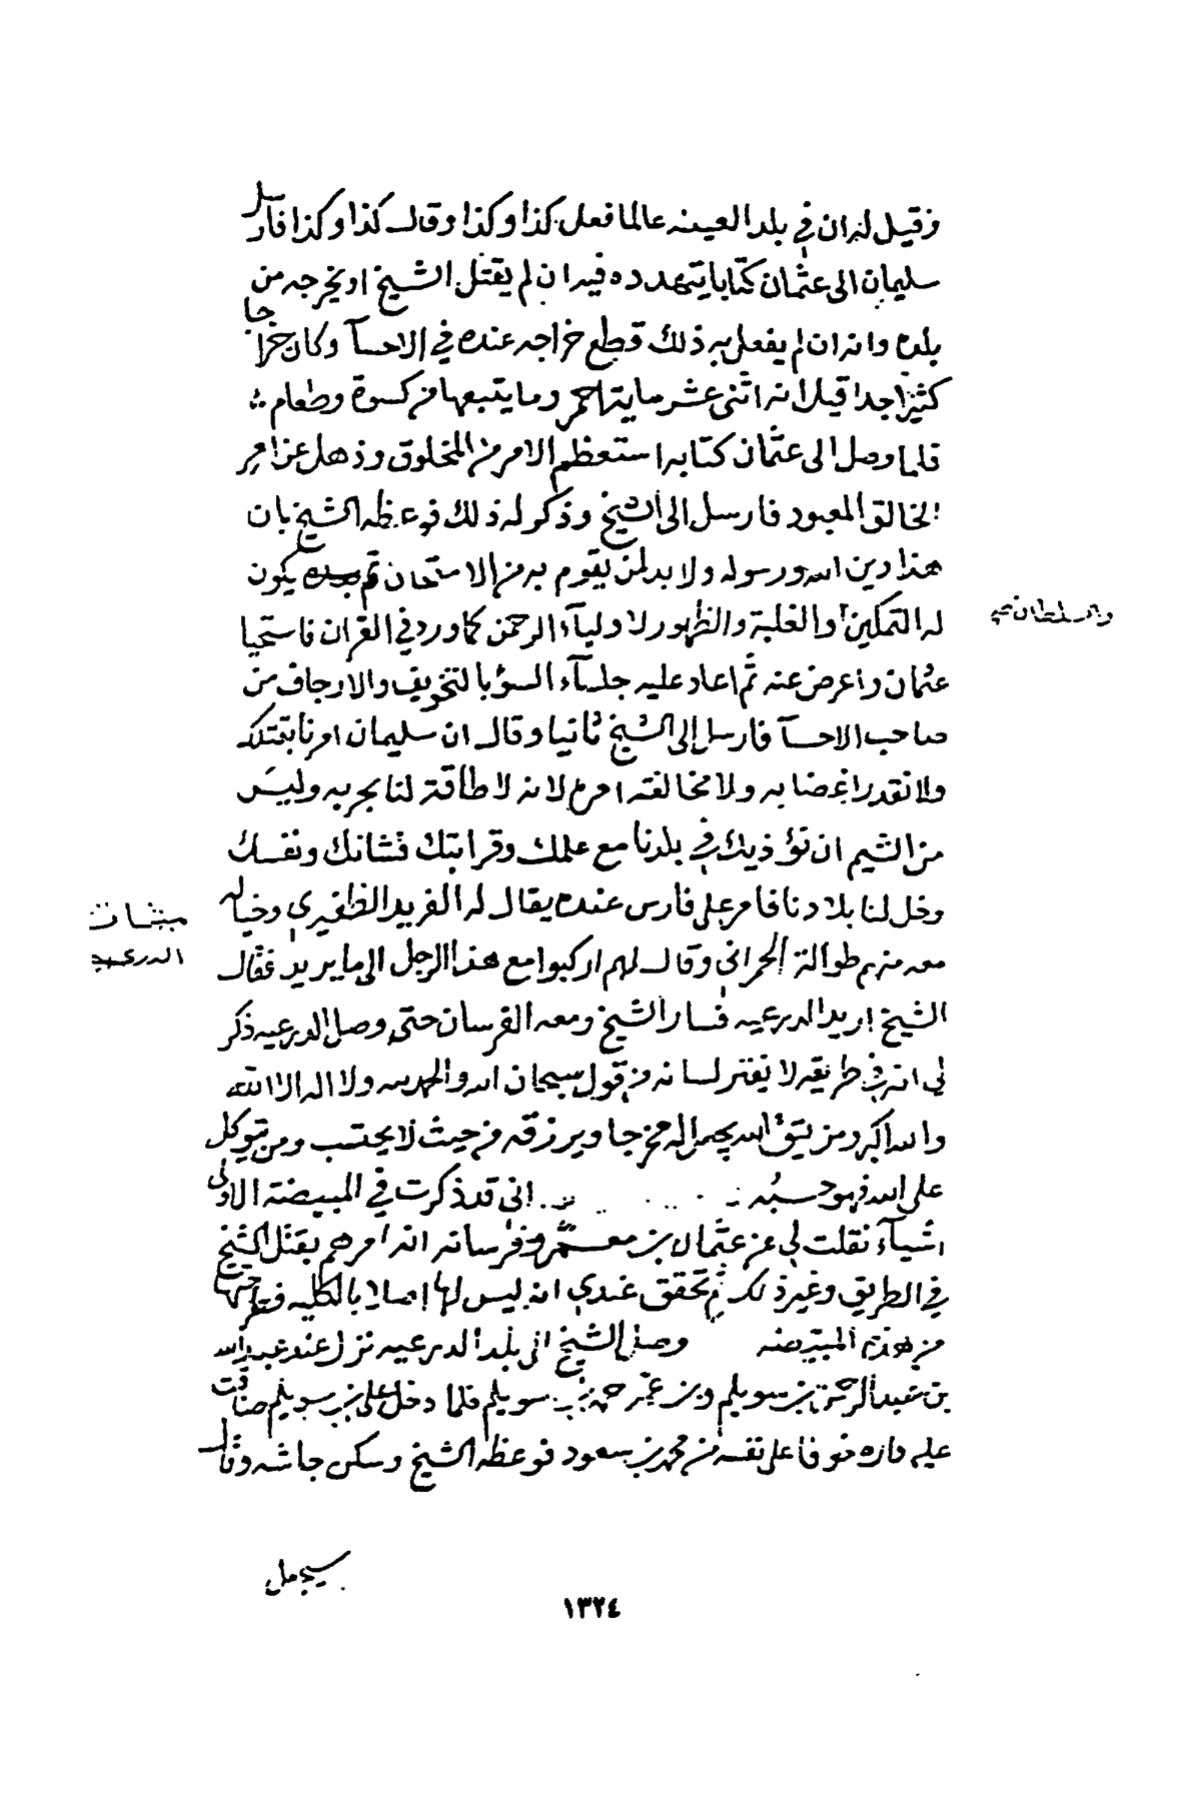 وقيل له ان في بلد العيينه عالما فعل كذا وكذا وقال كذا وكذا فارسل
سليمان الى عثمان كتابا يتهدده فيه ان لم يقتل الشيخ او يخرجه من
بلده وانه ان لم يفعل به ذلك قطع خراجه عنده في الاحسآ وكان خراجا
كثيرا جدا قيل انه اثنى عشر ماية احمر وما يتبعها من كسوة وطعام
فلما وصل الى عثمان كتابه استعظم الامر من المخلوق وذهل عن امر
الخالق المعبود فارسل الى الشيخ وذكر له ذلك فوعظه الشيخ بان
هذا دين الله ورسوله ولا بد لمن يقوم به من الامتحان ثم بعده يكون
له التمكين والغلبة والظهور لاوليآء الرحمن كما ورد في القران فاستحيا
والسلطان
عثمان واعرض عنه ثم اعاد عليه جلسآء السؤ بالتخويف والارجاف من
صاحب الاحسآ فارسل الى الشيخ ثانيا وقال ان سليمان امرنا بقتلك
ولا نقدر اغضابه ولا مخالفة امره لانه لا طاقة لنا بحربه وليس
من الشيم ان نؤذيك في بلدنا مع علمك وقرابتك فشانك ونفسك
وخل لنا بلادنا فامر على فارس عنده يقال له الفريد الظفيري وخياله
الدرعيه
معه منهم طوالة الحمراني وقال لهم اركبوا مع هذا الرجل الى ما يريد فقال
الشيخ اريد الدرعيه فسار الشيخ ومعه الفرسان حتى وصل الدرعيه ذكر
لي انه في طريقه لا يفتر لسانه من قول سبحان الله والحمد لله ولا اله الا الله
والله اكبر ومن يتق الله يجعل له مخرجا ويرزقه من حيث لا يحتسب ومن يتوكل
على الله فهو حسبه اني قد ذكرت في المبيضة الاولى
اشيآء نقلت لي عن عثمان بن معمر وفرسانه انه امرهم بقتل الشيخ
في الطريق وغير ذلك ثم تحقق عندي انه ليس لها اصلا بالكليه فطرحتها
من هذه المبيضه وصل الشيخ الى بلد الدرعيه نزل عند عبدالله
بن عبدالرحمن بن سويلم وبن عمه حمد بن سويلم فلما دخل على بن سويلم ضاقت
عليه داره خوفا على نفسه من محمد بن سعود فوعظه الشيخ وسكن جاشه وقال
سيجعل
١٣٢٤